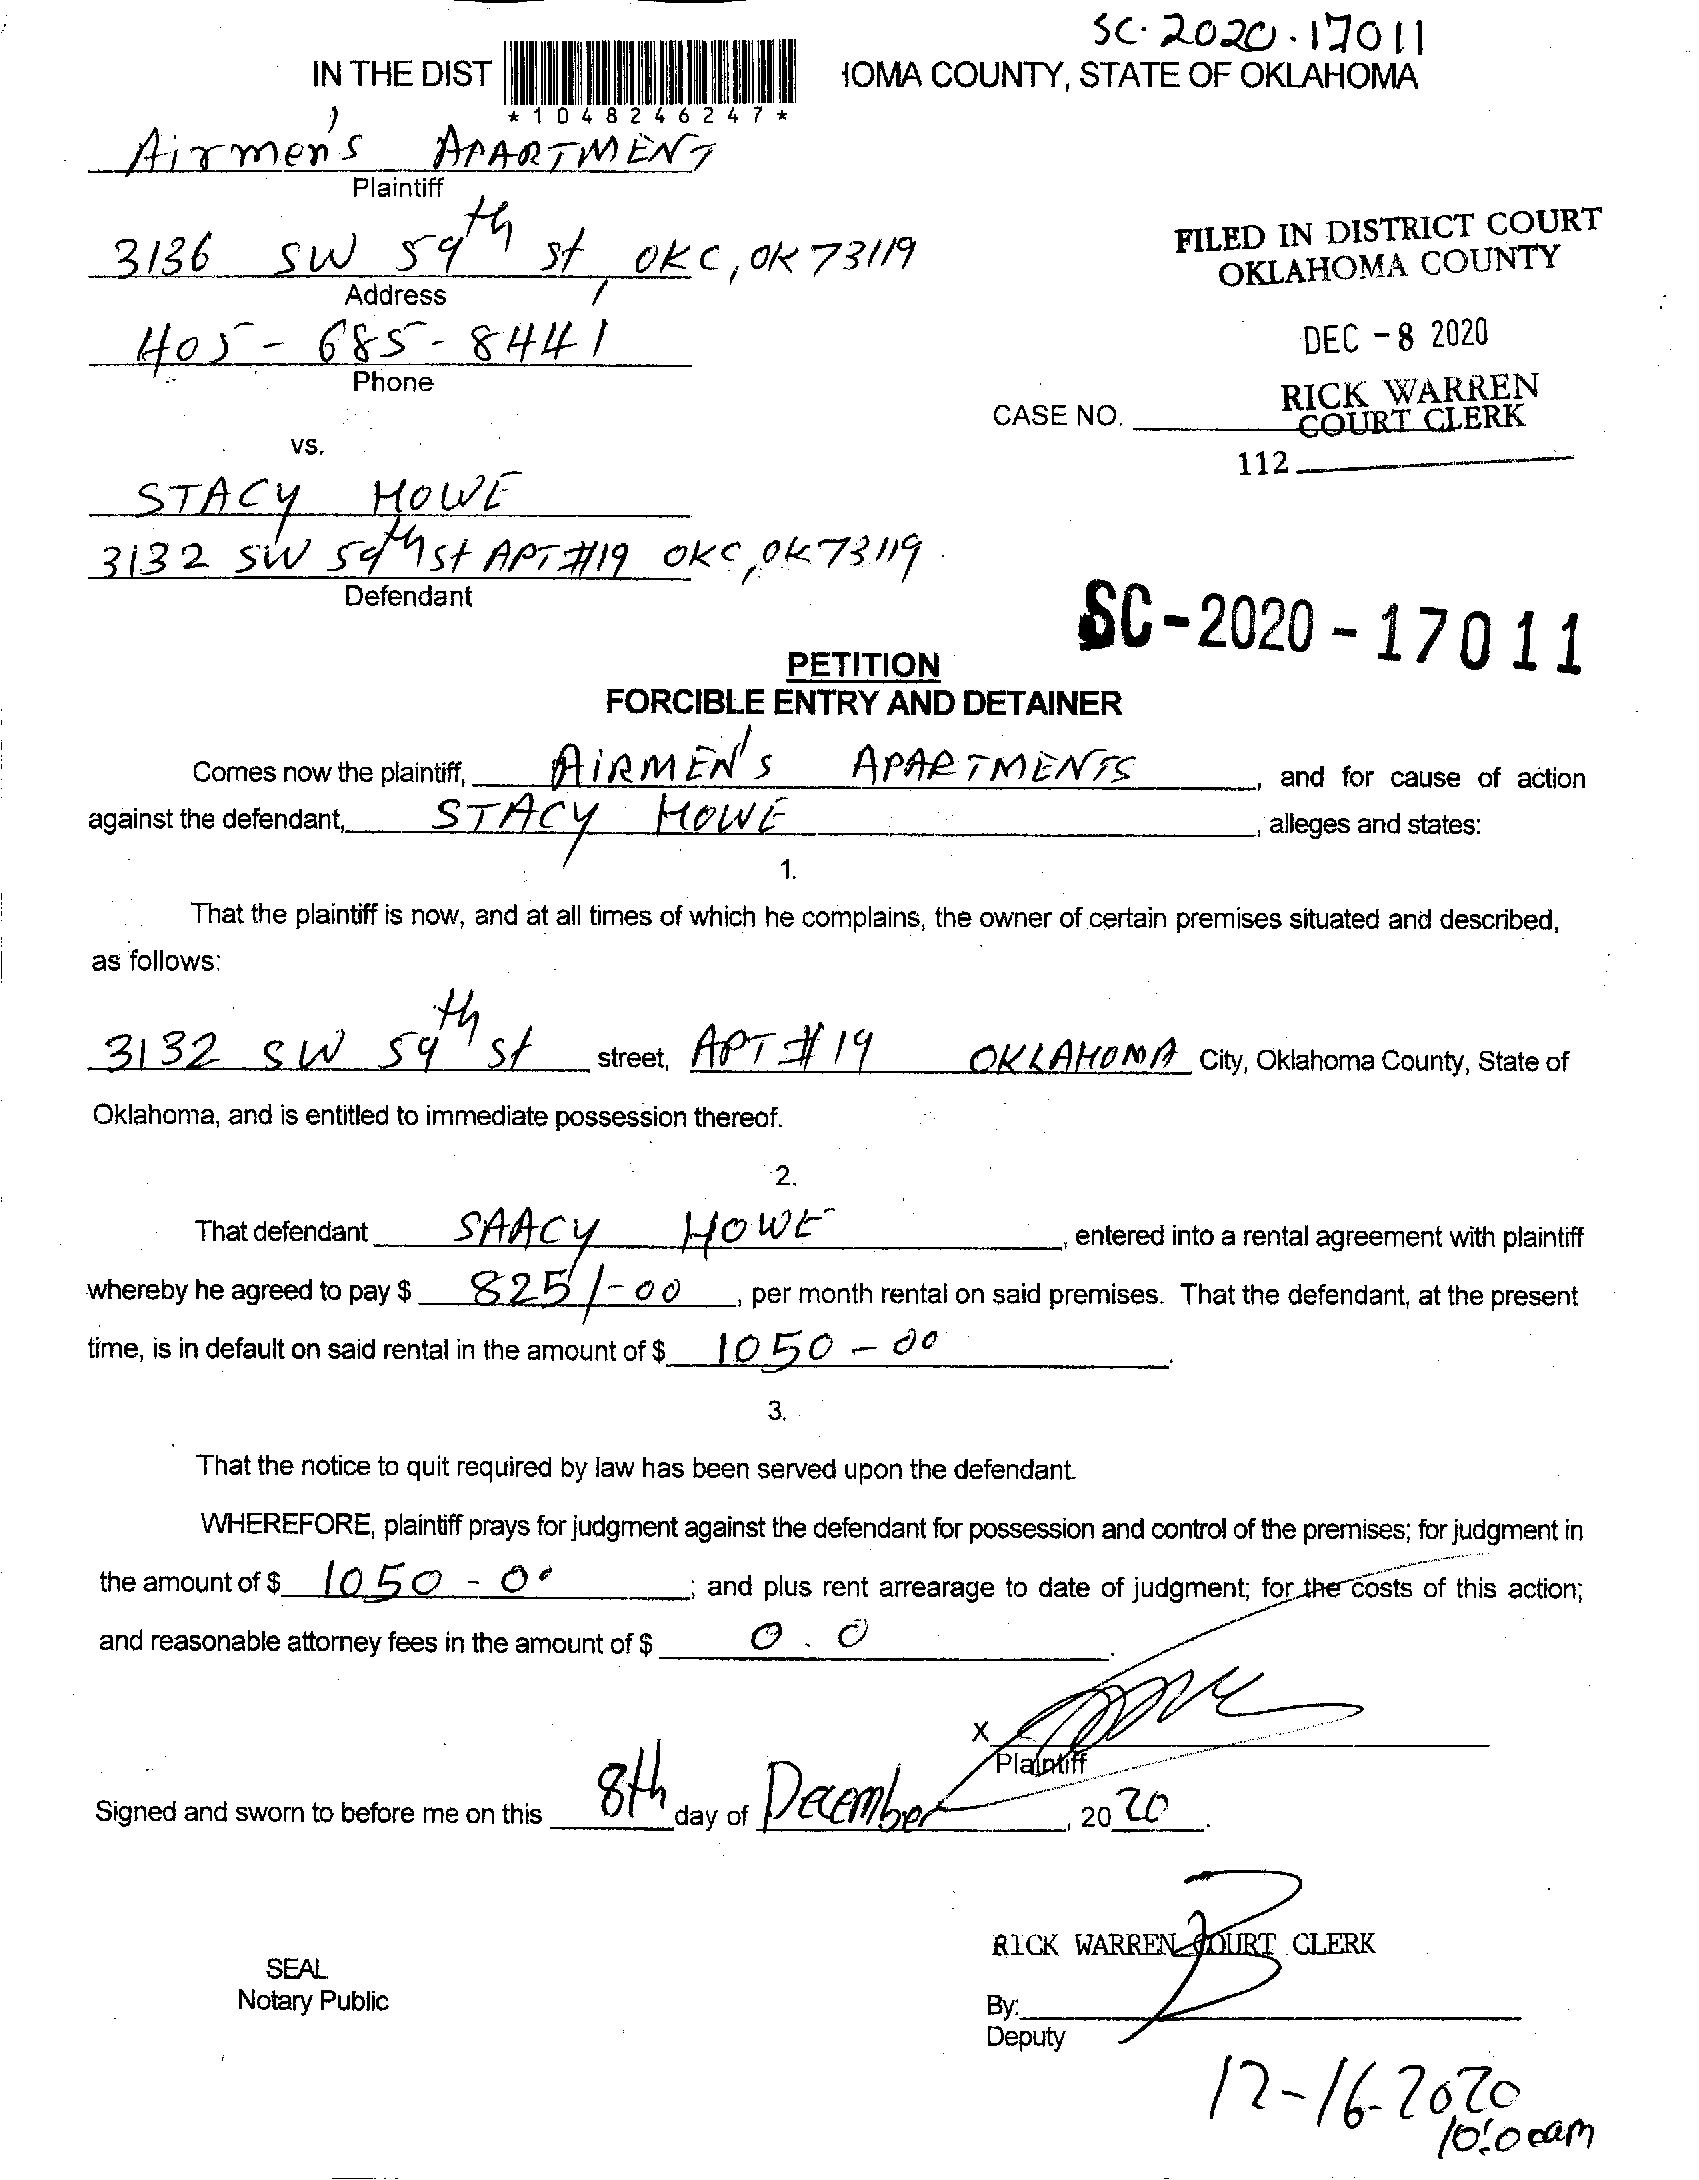 SC-2020-17011
IN THE DIST
IOMA COUNTY, STATE OF OKLAHOMA
*1048246247*
Airmen's APARTMENT
Plaintiff
3136 SW 59th st, OKC, OK 73119
Address
405-685-8441
Phone
FILED IN DISTRICT COURT
OKLAHOMA COUNTY
DEC -8 2020
RICK WARREN
COURT CLERK
112
CASE NO.
vs.
STACY HOWE
3132 SW 59th St APT #19 OKC, OK 73119
Defendant
SC-2020-17011
PETITION
FORCIBLE ENTRY AND DETAINER
Comes now the plaintiff, AIRMEN'S APARTMENTS, and for cause of action
against the defendant, STACY HOWE, alleges and states:
1.
That the plaintiff is now, and at all times of which he complains, the owner of certain premises situated and described,
as follows:
3132 SW 59th st street, APT # 19 OKLAHOMA City, Oklahoma County, State of
Oklahoma, and is entitled to immediate possession thereof.
2.
That defendant SAACY HOWE, entered into a rental agreement with plaintiff
whereby he agreed to pay $ 825/-00, per month rental on said premises. That the defendant, at the present
time, is in default on said rental in the amount of $ 1050-00.
3.
That the notice to quit required by law has been served upon the defendant.
WHEREFORE, plaintiff prays for judgment against the defendant for possession and control of the premises; for judgment in
the amount of $ 1050-00; and plus rent arrearage to date of judgment; for the costs of this action;
and reasonable attorney fees in the amount of $ 0.0.
X
Plaintiff
Signed and sworn to before me on this 8th day of December, 2020.
RICK WARREN COURT CLERK
SEAL
Notary Public
By:
Deputy
12-16-2020
10:00am